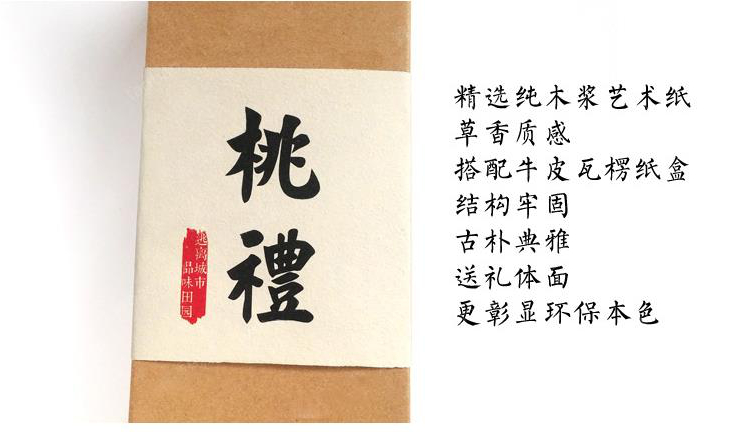 桃禮
逃离城市
品味田园
精选纯木浆艺术纸
草香质感
搭配牛皮瓦楞纸盒
结构牢固
古朴典雅
送礼体面
更彰显环保本色